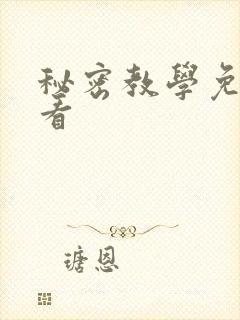 秘密教學免
看
瑭恩